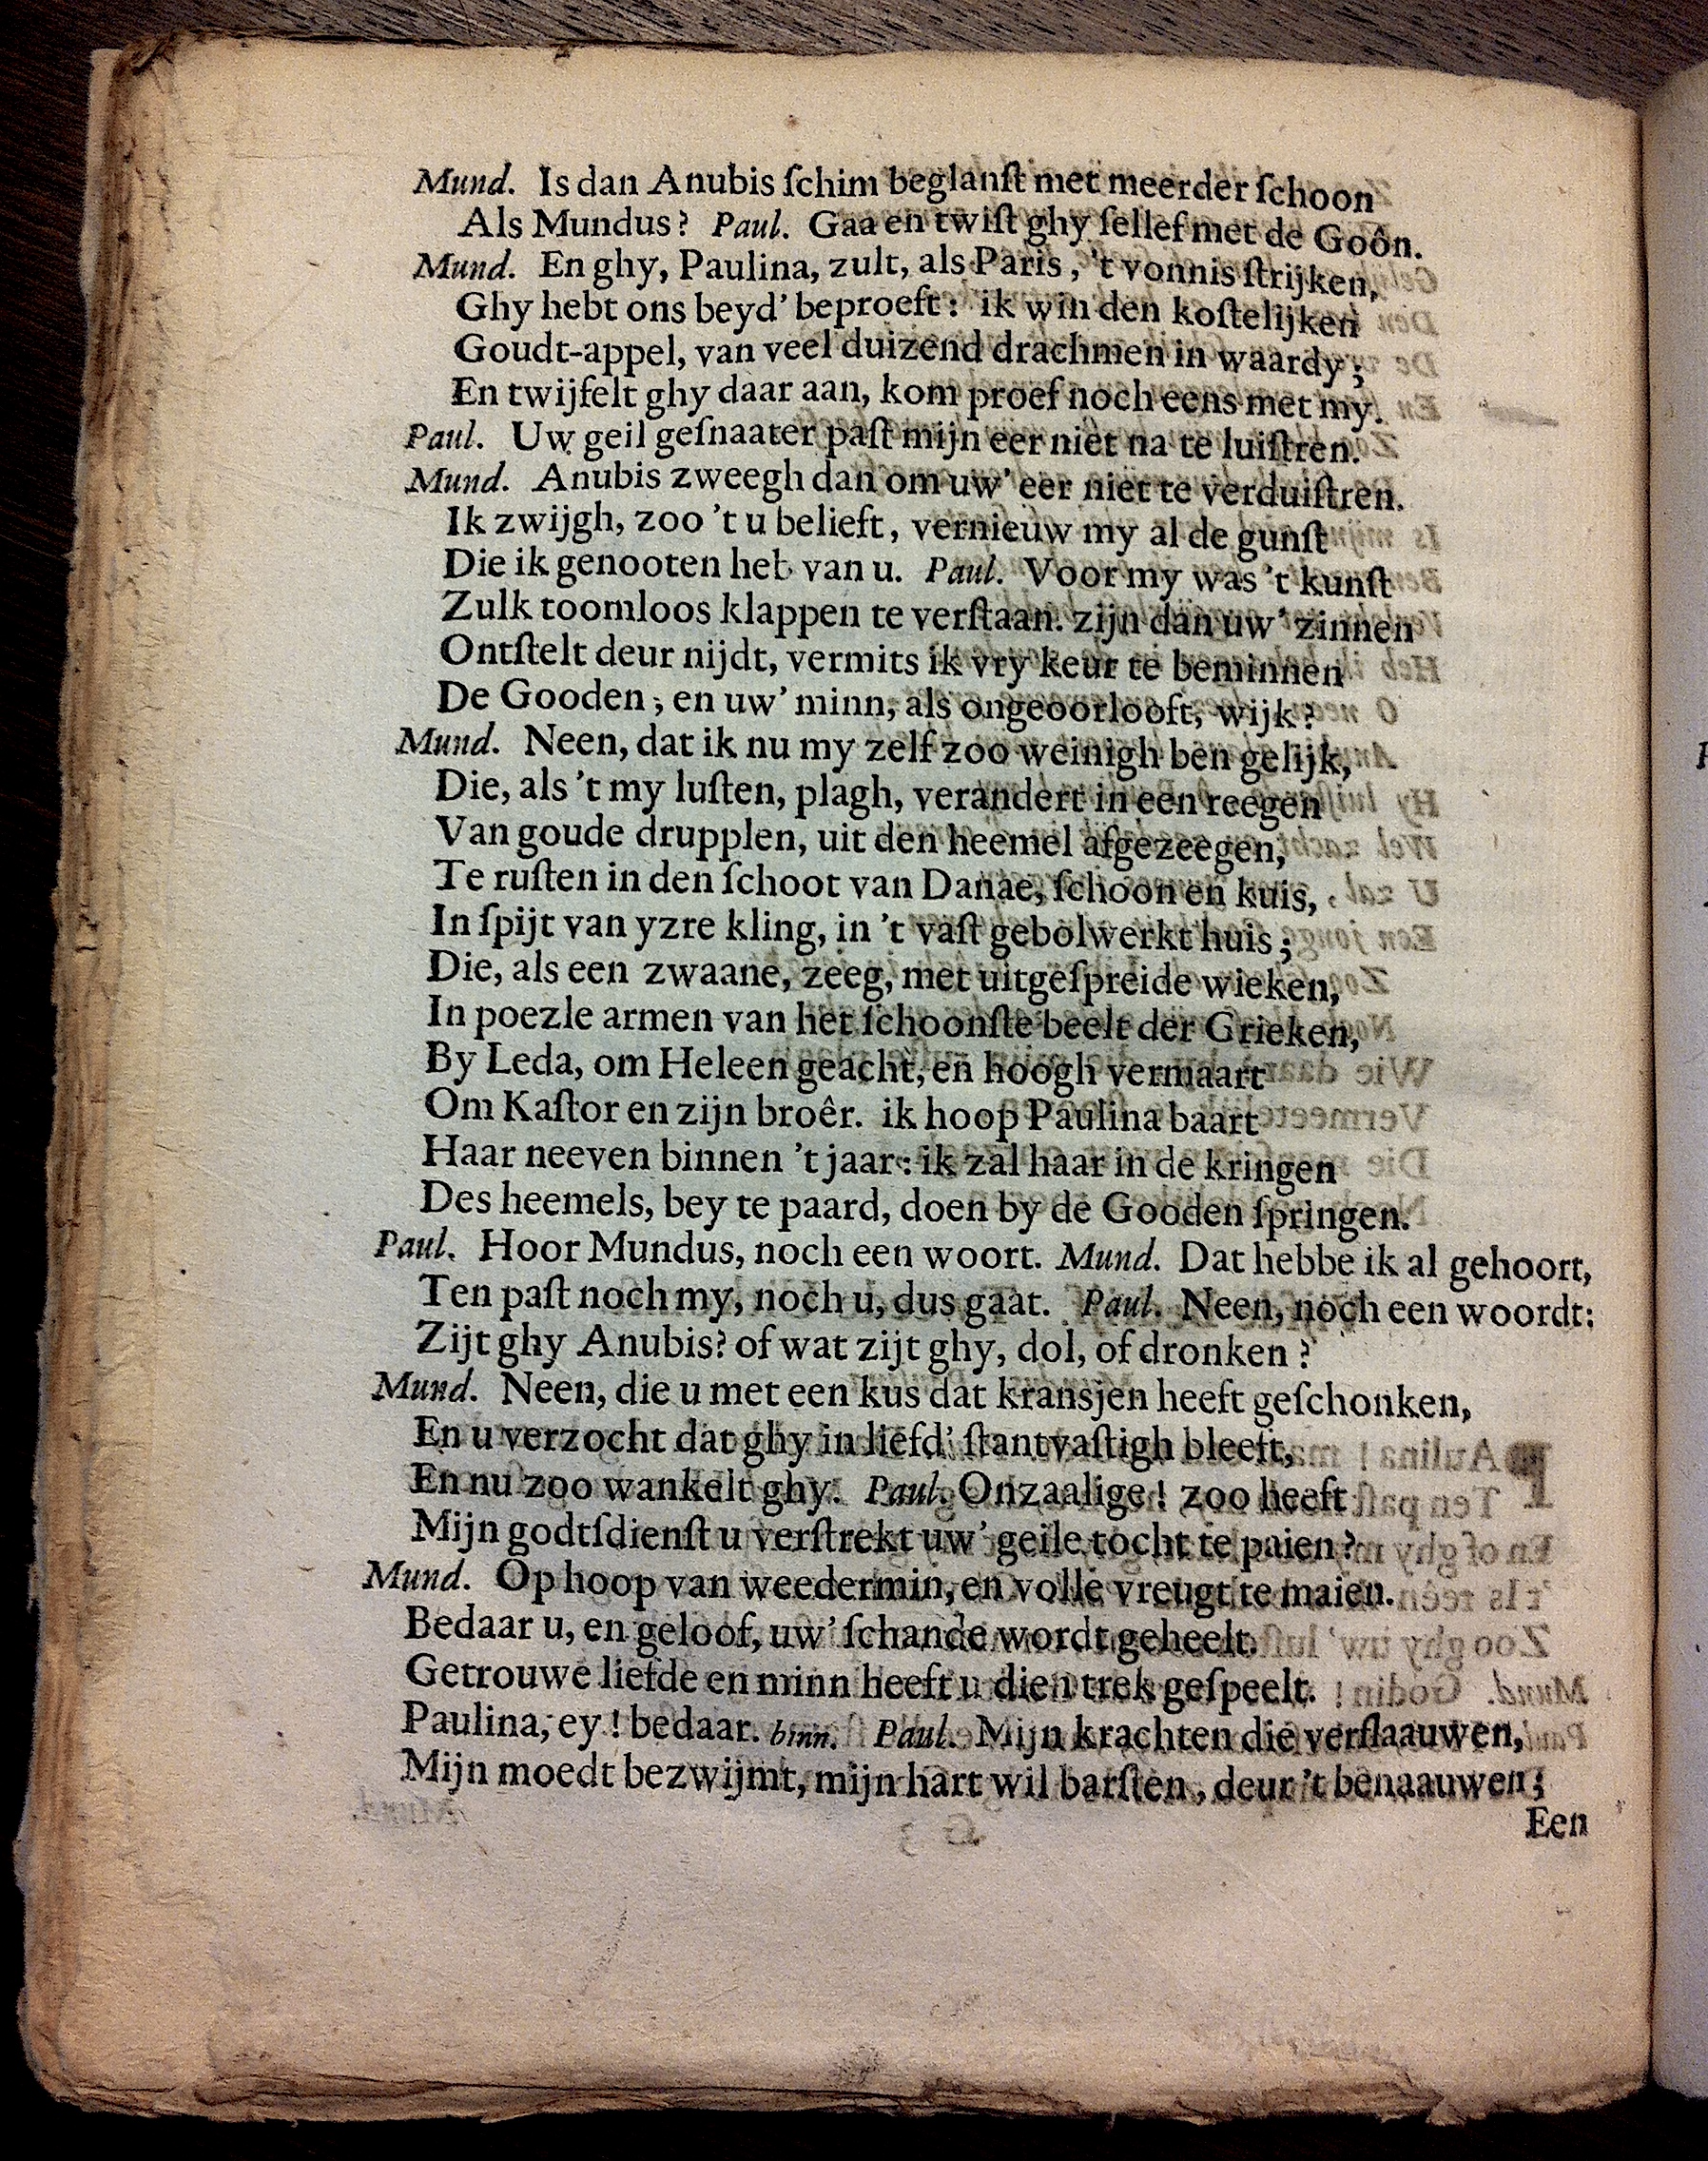 Mund. Is dan Anubis ſchim beglanſt met meerder ſchoon
Als Mundus? Paul. Gaa en twiſt ghy ſellef met de Goôn.
Mund. En ghy, Paulina, zult, als Paris, 't vonnis ſtrijken,
Ghy hebt ons beyd' beproeft: ik win den koſtelijken
Goudt-appel, van veel duizend drachmen in waardy;
En twijfelt ghy daar aan, kom proef noch eens met my.
Paul. Uw geil geſnaater paſt mijn eer niet na te luiſtren.
Mund. Anubis zweegh dan om uw' eer niet te verduiſtren.
Ik zwijgh, zoo 't u belieft, vernieuw my al de gunſt
Die ik genooten heb van u. Paul. Voor my was 't kunſt
Zulk toomloos klappen te verſtaan. zijn dan uw' zinnen
Ontſtelt deur nijdt, vermits ik vry keur te beminnen
De Gooden; en uw' minn, als ongeoorlooft, wijk?
Mund. Neen, dat ik nu my zelf zoo weinigh ben gelijk,
Die, als 't my luſten, plagh, verandert in een reegen
Van goude drupplen, uit den heemel afgezeegen,
Te ruſten in den ſchoot van Danae, ſchoon en kuis,
In ſpijt van yzre kling, in 't vaſt gebolwerkt huis;
Die, als een zwaane, zeeg, met uitgeſpreide wieken,
In poezle armen van het ſchoonſte beelt der Grieken,
By Leda, om Heleen geacht, en hoogh vermaart
Om Kaſtor en zijn broêr. ik hoop Paulina baart
Haar neeven binnen 't jaar: ik zal haar in de kringen
Des heemels, bey te paard, doen by de Gooden ſpringen.
Paul. Hoor Mundus, noch een woort. Mund. Dat hebbe ik al gehoort,
Ten paſt noch my, noch u, dus gaat. Paul. Neen, noch een woordt:
Zijt ghy Anubis? of wat zijt ghy, dol, of dronken?
Mund. Neen, die u met een kus dat kransjen heeft geſchonken,
En u verzocht dat ghy in liefd' ſtantvaſtigh bleeft,
En nu zoo wankelt ghy. Paul. Onzaalige! zoo heeft
Mijn godtſdienſt u verſtrekt uw' geile tocht te paien?
Mund. Op hoop van weedermin, en volle vreugt te maien.
Bedaar u, en geloof, uw' ſchande wordt geheelt.
Getrouwe liefde en minn heeft u dien trek geſpeelt.
Paulina, ey! bedaar. binn. Paul. Mijn krachten die verflaauwen,
Mijn moedt bezwijmt, mijn hart wil barſten, deur 't benaauwen;
Een